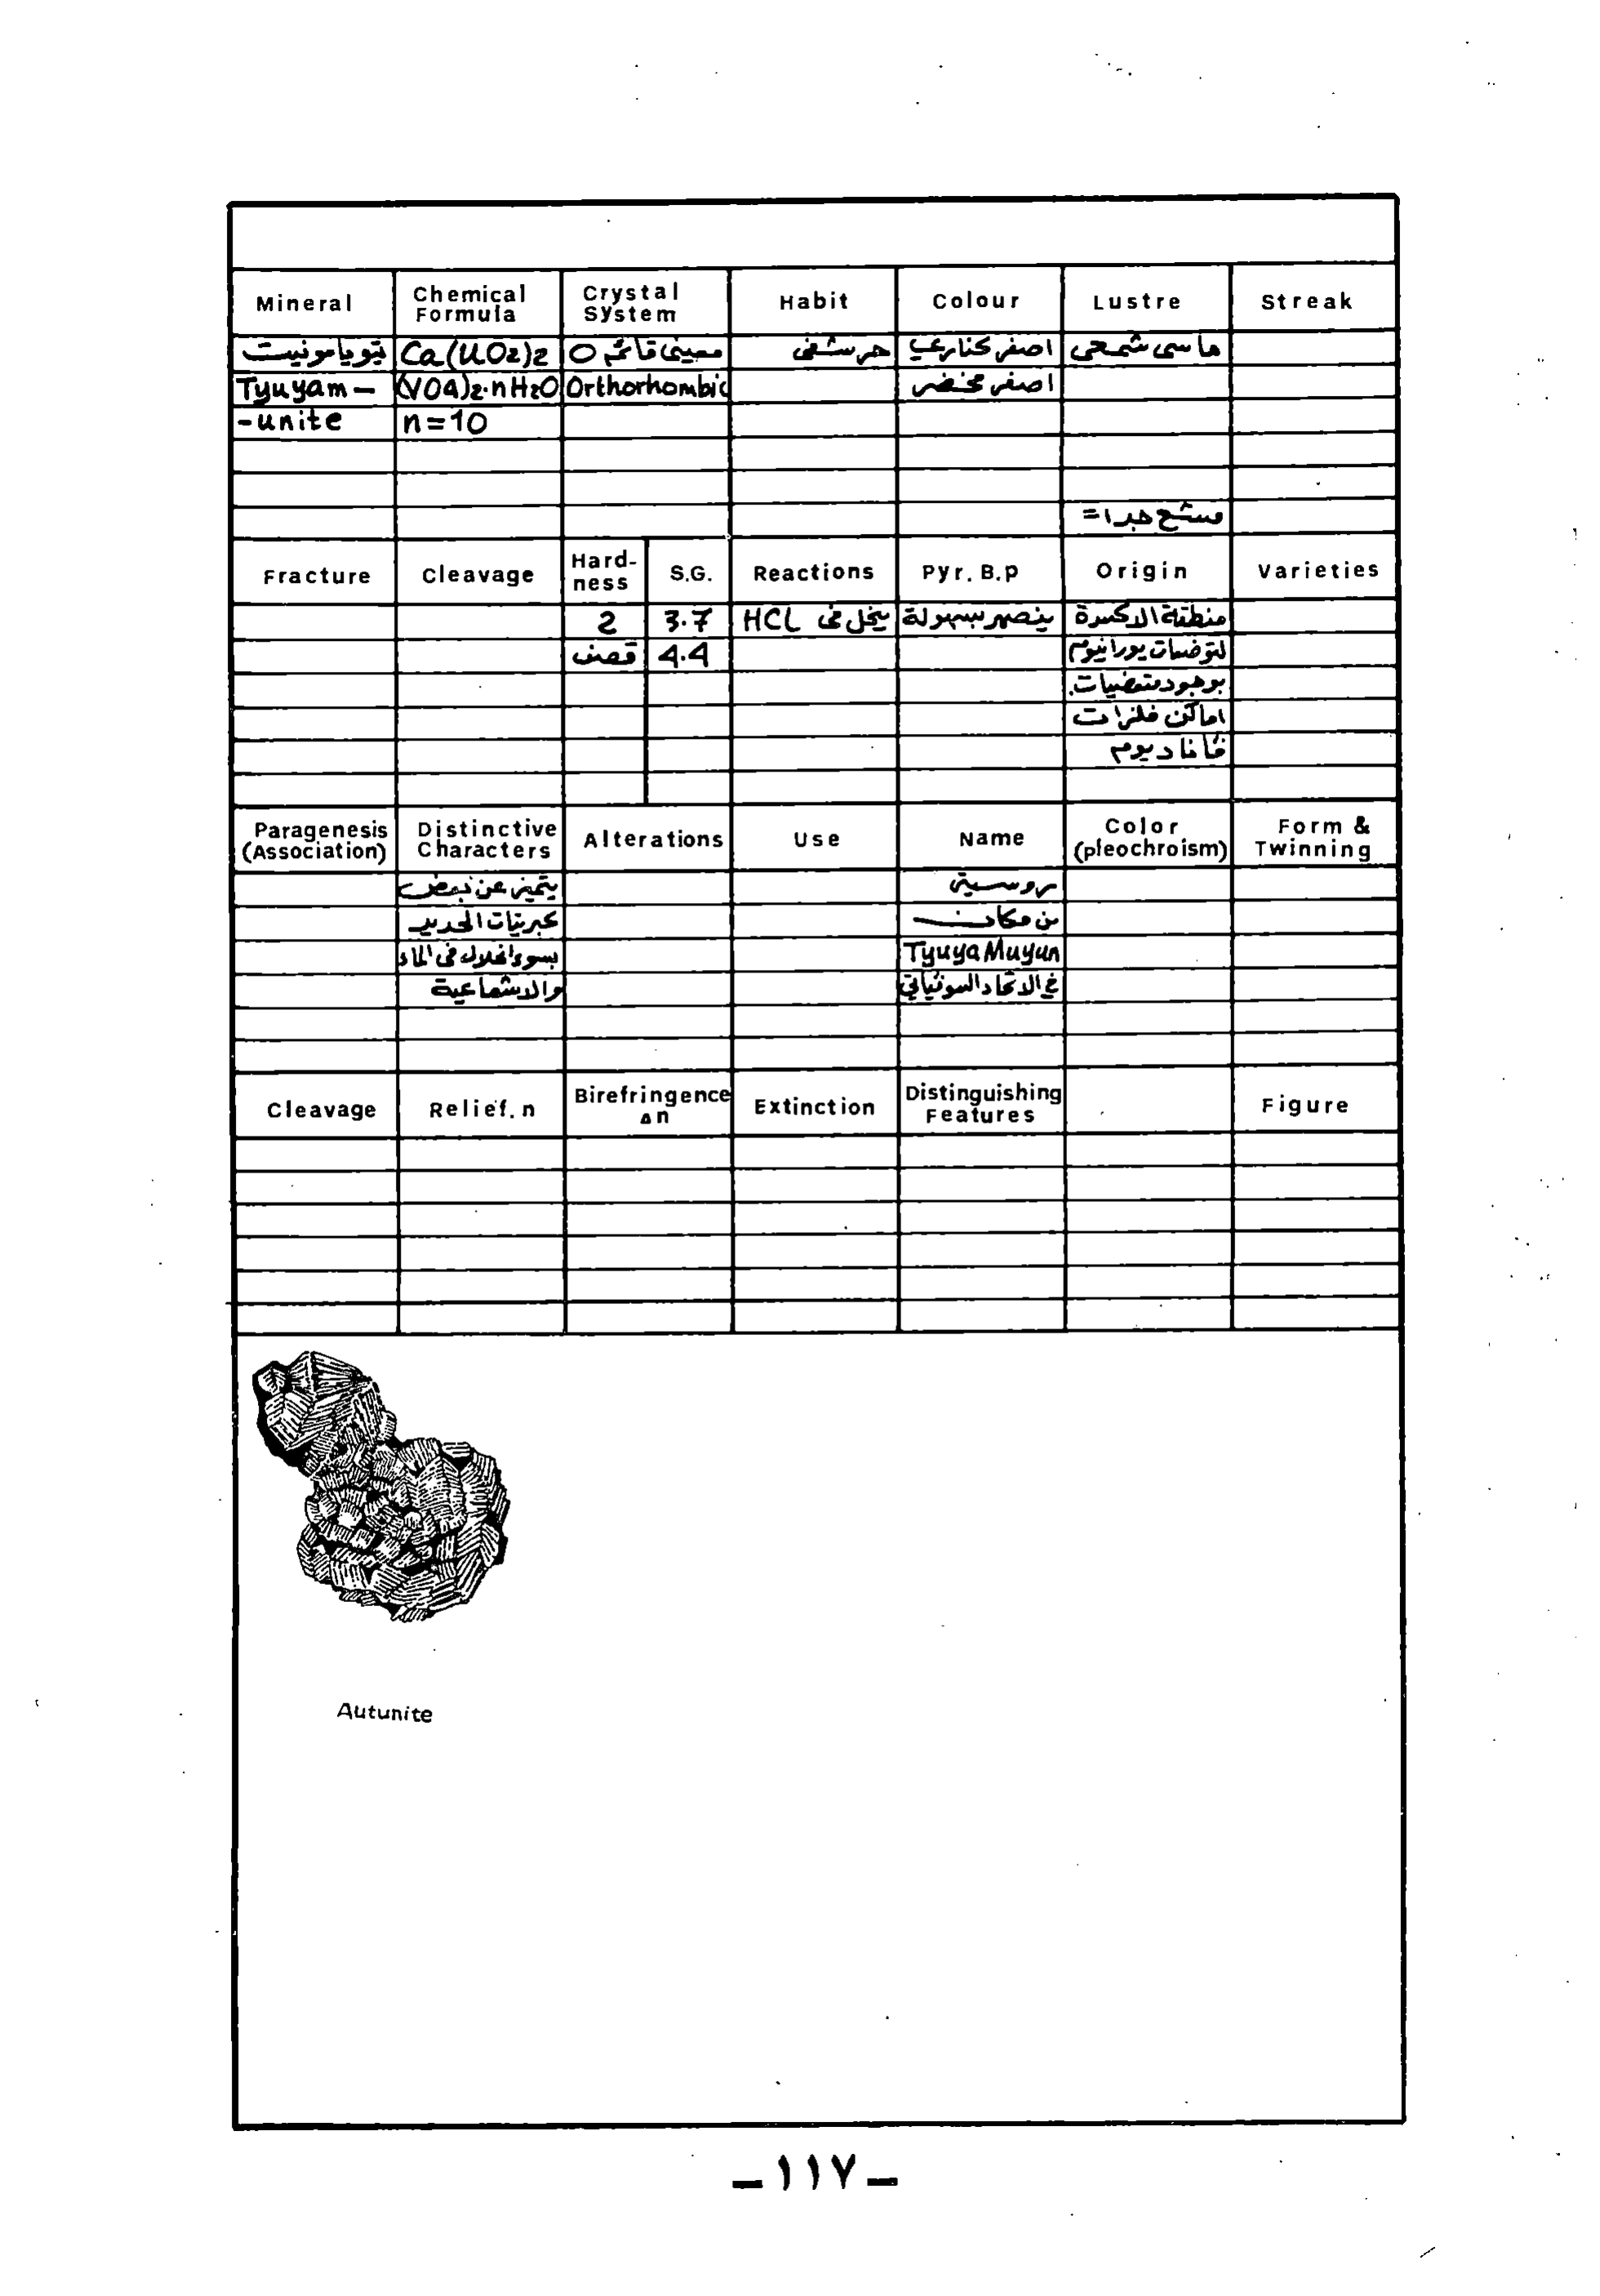 Mineral
Chemical Formula
Crystal System
Habit
Colour
Lustre
Streak
تيويامونيت Ca(UO2)2 معيني قائم O حرشفي اصفر كناري ماسي شمعي
Tyuyam- (VO4)2.nH2O Orthorhombic اصفر مخضر
-unite n=10
مشع جدا =
Fracture
Cleavage
Hard-ness
S.G.
Reactions
Pyr. B.p
Origin
Varieties
2 3.7 ينحل في HCL ينصهر بسهولة منطقة الاكسدة
قصف 4.4 لتوضعات يورانيوم
بوجود
اماكن فلزات
فاناديوم
Paragenesis (Association)
Distinctive Characters
Alterations
Use
Name
Color (pleochroism)
Form & Twinning
يتميز عن بعض روسية
كبريتات الحديد من مكان
بسوء انحلاله في الماء Tyuya Muyun
والاشعاعية في الاتحاد السوفياتي
Cleavage
Relief. n
Birefringence Δn
Extinction
Distinguishing Features
Figure
Autunite
- ١١٧ -